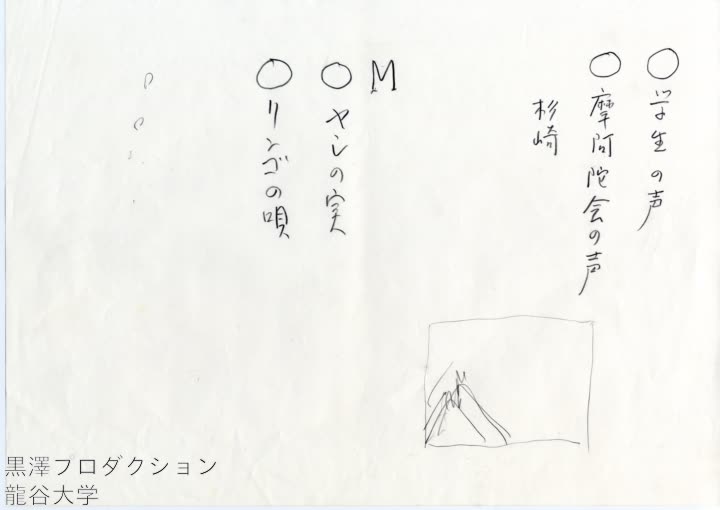 ○学生の声
○摩阿陀会の声
杉崎
M
○ヤシの実
○リンゴの唄
黒澤プロダクション
龍谷大学